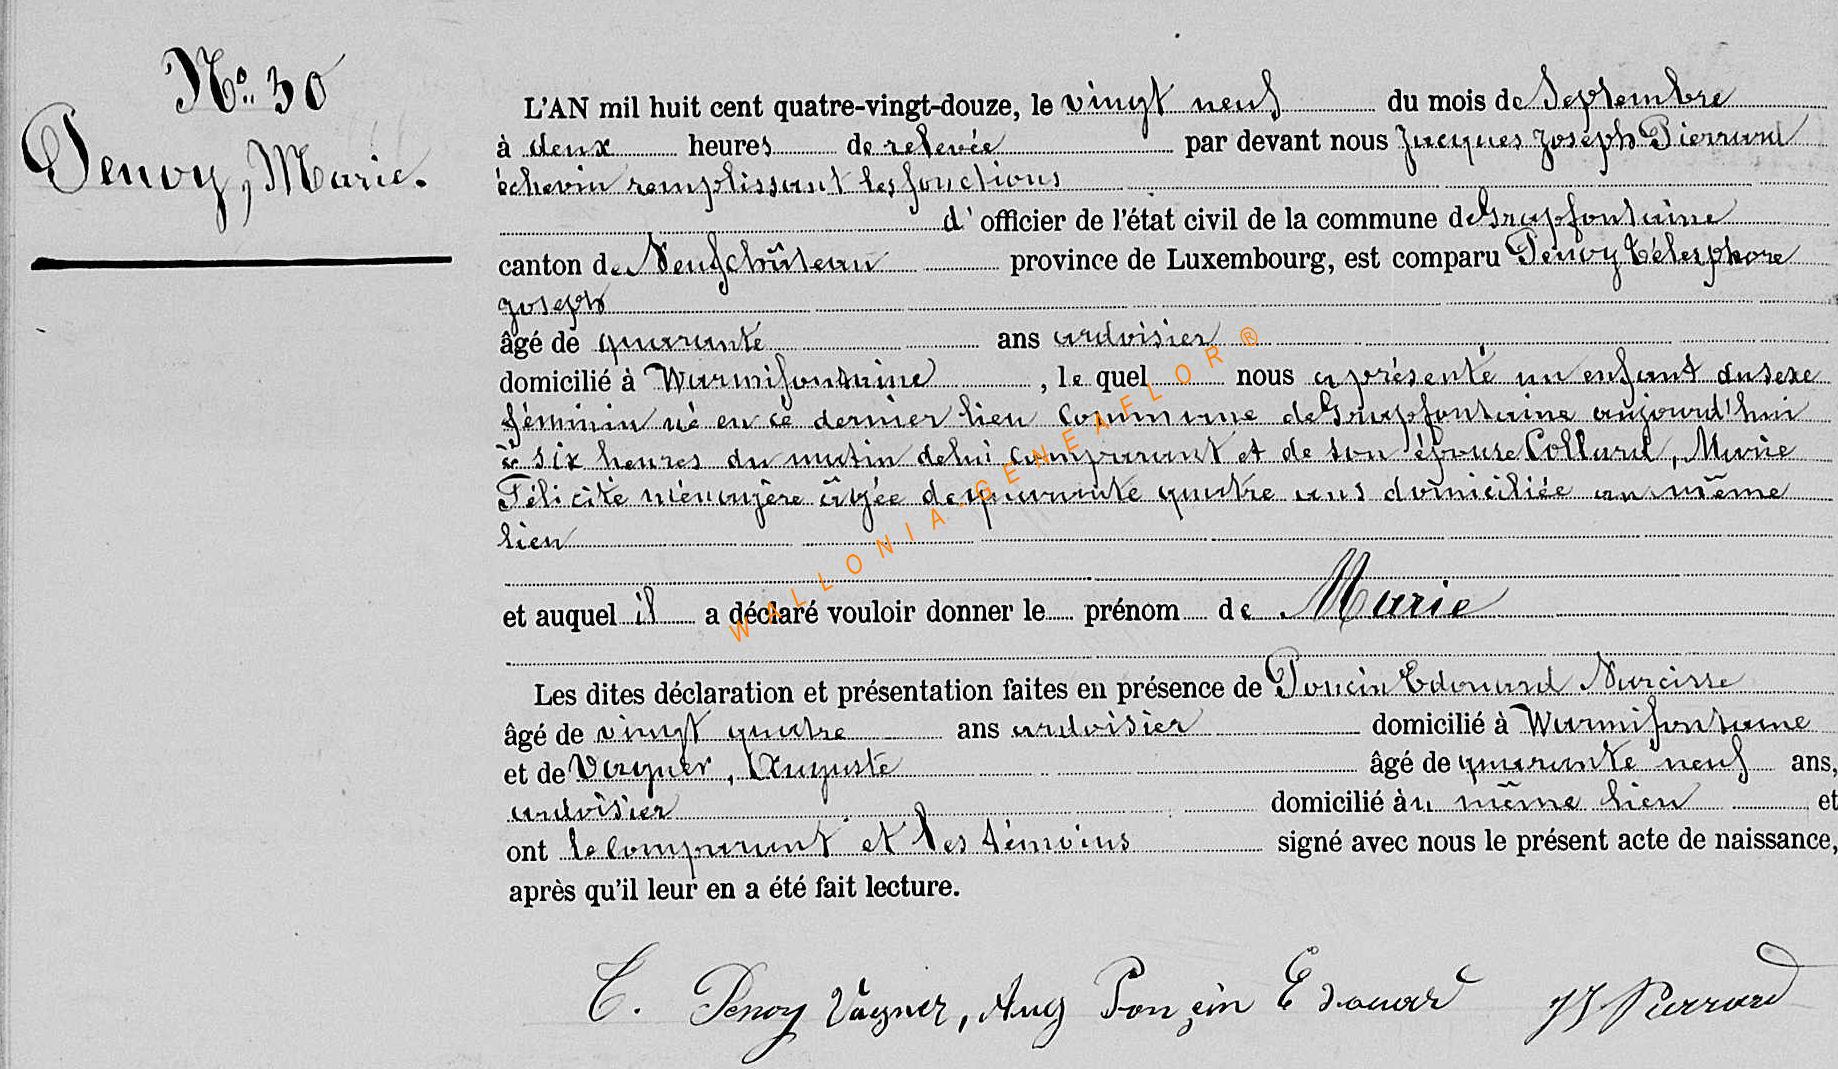 N° 30
Penoy, Marie.
L'AN mil huit cent quatre-vingt-douze, le vingt neuf du mois de Septembre
à deux heures de relevée par devant nous Jacques Joseph Pierrard
échevin remplissant les fonctions
d' officier de l'état civil de la commune de Grapfontaine
canton de Neufchâteau province de Luxembourg, est comparu Penoy Télesphore
Joseph
âgé de quarante ans ardoisier
domicilié à Warmifontaine, le quel nous a présenté un enfant du sexe
féminin né en ce dernier lieu commune de Grapfontaine aujourd'hui
à six heures du matin de lui comparant et de son épouse Collard, Marie
Félicité ménagère âgée de quarante quatre ans domiciliée au même
lieu
et auquel il a déclaré vouloir donner le prénom de Marie
Les dites déclaration et présentation faites en présence de Poncin Edouard Narcisse
âgé de vingt quatre ans ardoisier domicilié à Warmifontaine
et de Vagner, Auguste âgé de quarante neuf ans,
ardoisier domicilié au même lieu et
ont le comparant et les témoins signé avec nous le présent acte de naissance,
après qu'il leur en a été fait lecture.
T. Penoy Vagner, Aug Ponçin Edouard JJ Pierrard
WALLONIA-GENEAFLOR ®